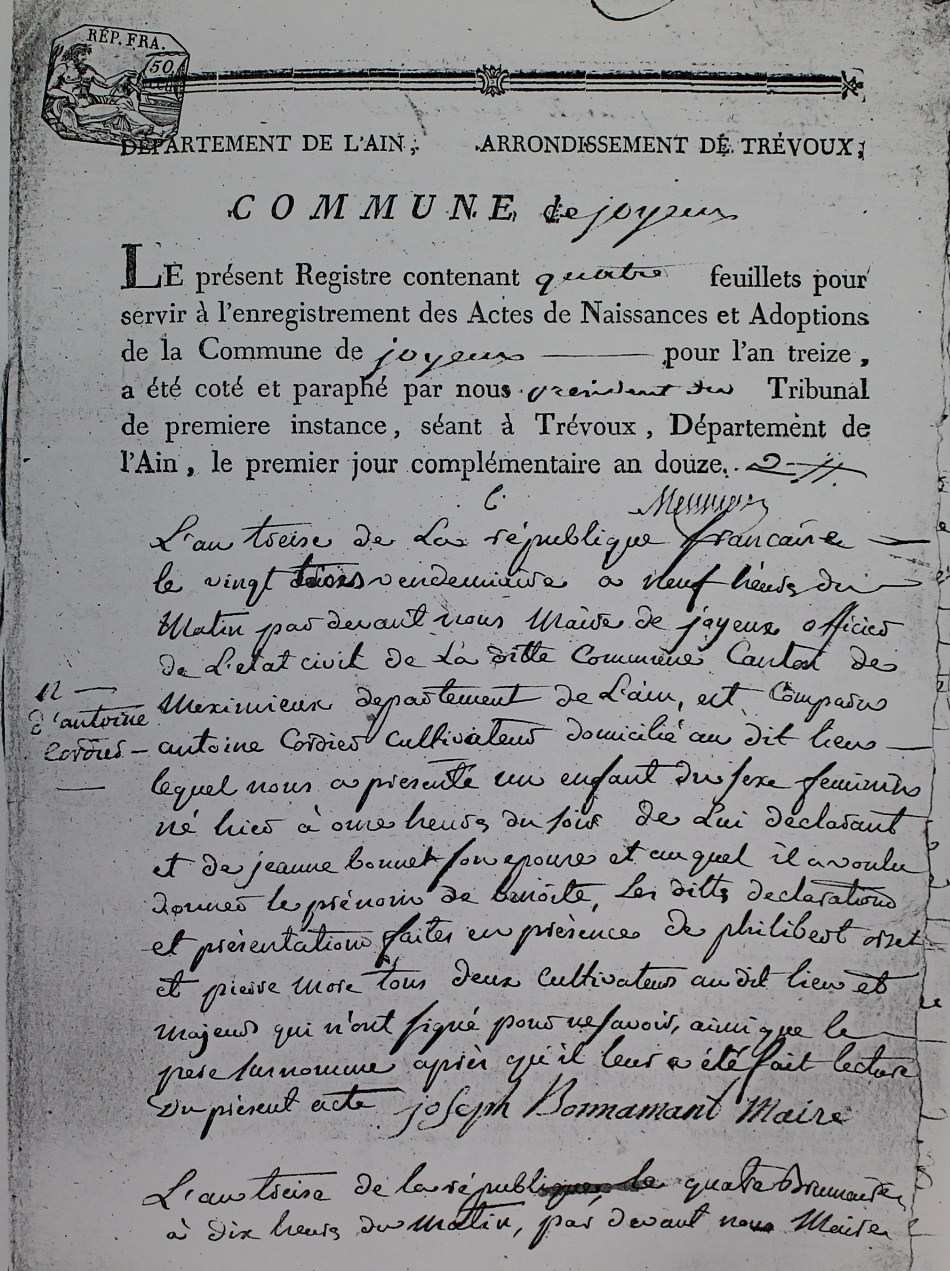 RÉP. FRA.
50
DÉPARTEMENT DE L'AIN, ARRONDISSEMENT DE TRÉVOUX,
COMMUNE de joyeux
LE présent Registre contenant quatre feuillets pour
servir à l'enregistrement des Actes de Naissances et Adoptions
de la Commune de joyeux pour l'an treize,
a été coté et paraphé par nous president du Tribunal
de premiere instance, séant à Trévoux, Département de
l'Ain, le premier jour complémentaire an douze.
L'an treise de La république francaise
le vingt trois vendemiaire a neuf heures du
Matin par devant nous Maire de joyeux officier
de L'etat civil de La ditte Commune Canton de
Meximieux departement de L'ain, est Comparu
antoine Cordier Cultivateur domicilié au dit lieu
lequel nous a presenté un enfant du sexe feminin
né hier à onse heures du soir de Lui declarant
et de jeanne bonnet son epouse et auquel il a voulu
donner le prénom de benoite, Les dittes declaration
et présentation faites en présence de philibert orset
et pierre More tous deux Cultivateurs au dit lieu et
majeurs qui n'ont signé pour ne savoir, ainsi que le
pere surnomme après qu'il leur a été fait lecture
du présent acte joseph Bonnamant Maire
N
d'antoine
Cordier
L'an treise de la république, le quatre Brumaire
à dix heures du Matin, par devant nous Maire